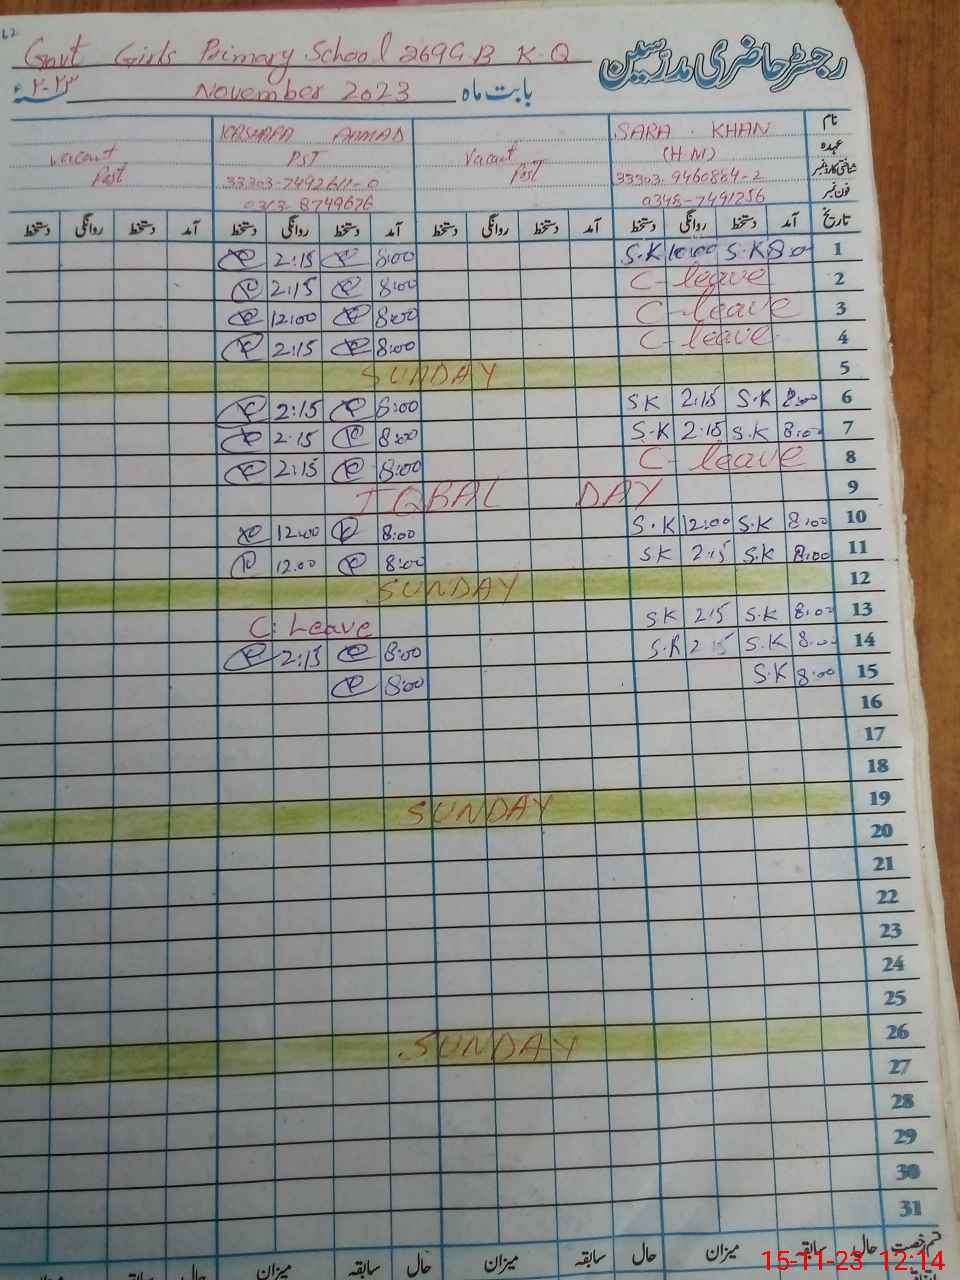 62
Govt Girls Primary School 269GB K.Q
رجسٹر حاضری مدرسین
بابت ماہ November 2023 ۲۰۲۳ء
نام SARA KHAN AHMAD
عہدہ (H.M) Vacant PST Vacant
شناختی کارڈ نمبر 33303-9460884-2 Post 33303-7492611-0 Post
فون نمبر 0348-7491256 0313-8749676
تاریخ آمد دستخط روانگی دستخط آمد دستخط روانگی دستخط آمد دستخط روانگی دستخط آمد دستخط روانگی دستخط
1 8:00 S.K 10:00 S.K 8:00 2:15
2 C-leave 8:00 2:15
3 C-leave 8:00 12:00
4 C-leave 8:00 2:15
5 SUNDAY
6 8:00 S.K 2:15 SK 8:00 2:15
7 8:00 S.K 2:15 S.K 8:00 2:15
8 C-leave 8:00 2:15
9 IQBAL DAY
10 8:00 S.K 12:00 S.K 8:00 12:00
11 8:00 S.K 2:15 SK 8:00 12:00
12 SUNDAY
13 8:00 S.K 2:15 SK C. Leave
14 8:00 S.K 2:15 S.K 8:00 2:15
15 8:00 S.K 8:00
16
17
18
19 SUNDAY
20
21
22
23
24
25
26 SUNDAY
27
28
29
30
31
قسم رخصت حال سابقہ میزان حال سابقہ میزان حال سابقہ میزان حال سابقہ میزان
15-11-23 12:14